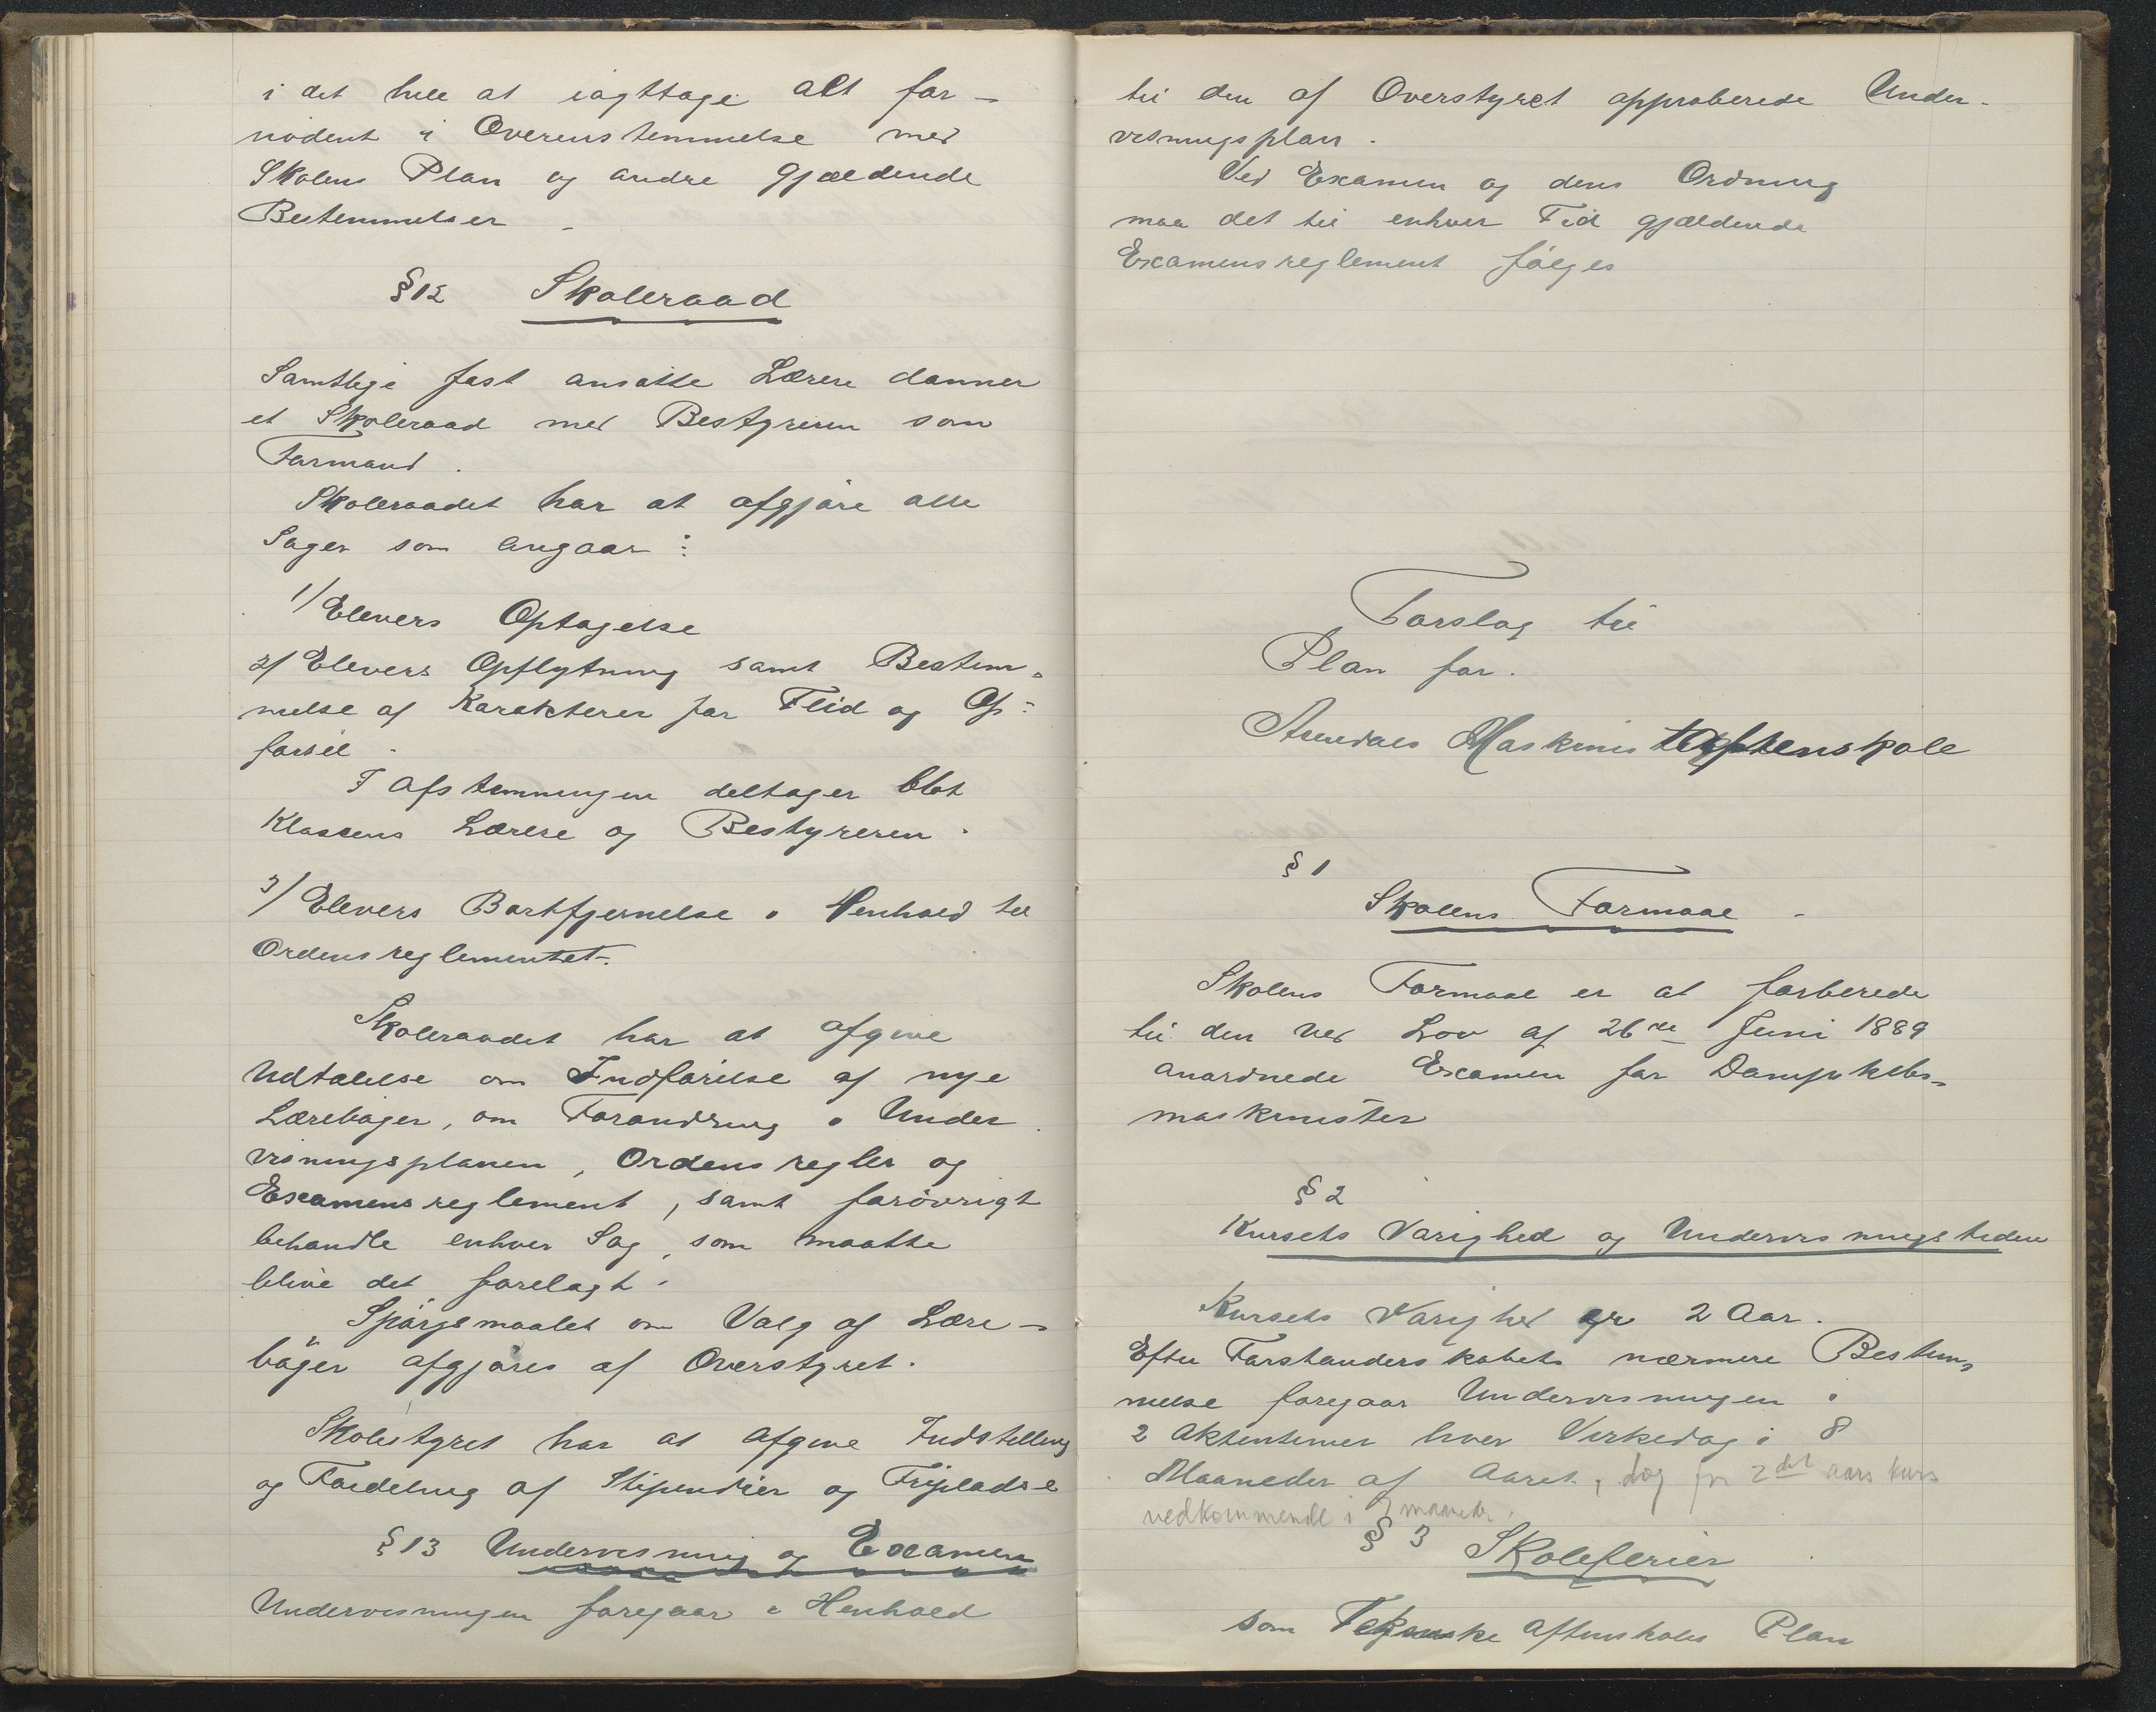 i det hele at iagttage alt for-
nødent i Overensstemmelse med
Skolens Plan og andre gjældende
Bestemmelser.
§ 12 Skoleraad
Samtlige fast ansatte Lærere danner
et Skoleraad med Bestyreren som
Formand.
Skoleraadet har at afgjøre alle
Sager som angaar:
1/ Elevers Optagelse
2/ Elevers Opflytning samt Bestem-
melse af Karakterer for Flid og Op-
førsel.
I Afstemningen deltager blot
Klassens Lærere og Bestyreren.
3/ Elevers Bortfjernelse i Henhold til
Ordensreglementet.
Skoleraadet har at afgive
Udtalelse om Indførelse af nye
Lærebøger, om Forandring i Under
visningsplanen, Ordensregler og
Examensreglement, samt forøvrigt
behandle enhver Sag, som maatte
blive det forelagt.
Spørgsmaalet om Valg af Lære-
bøger afgjøres af Overstyret.
Skolestyret har at afgive Indstilling
og Fordeling af Stipendier og Fripladse
§ 13 Undervisning og Examen
Undervisningen foregaar i Henhold
til den af Overstyret approberede Under-
visningsplan.
Ved Examen og dens Ordning
maa det til enhver Tid gjældende
Examensreglement følges
Forslag til
Plan for.
Arendals Maskinistaftenskole
§ 1
Skolens Formaal -
Skolens Formaal er at forberede
til den ved Lov af 26de Juni 1889
anordnede Examen for Dampskibs-
maskinister
§ 2
Kursets Varighed og Undervisningstiden
Kursets Varighed er 2 Aar.
Efter Forstanderskabets nærmere Bestem-
melse foregaar Undervisningen i
2 Aftentimer hver Virkedag i 8
Maaneder af Aaret, dog for 2det aars kurs
vedkommende i 7 maaneder.
§ 3 Skoleferier
som Tekniske Aftenskoles Plan